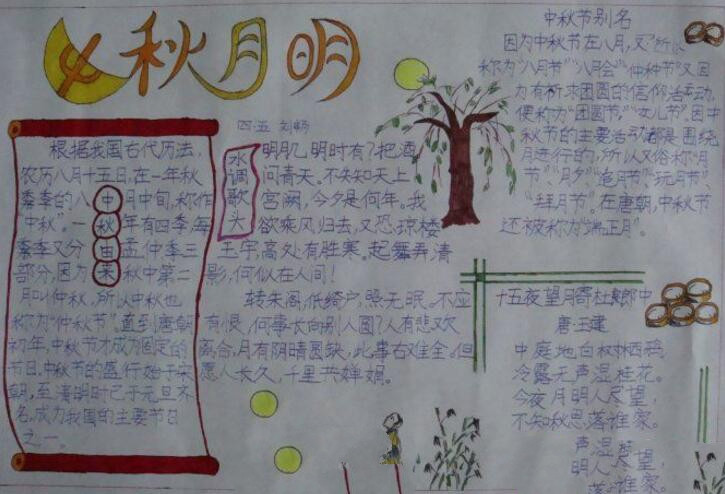 中秋月明
四.五 刘畅
根据我国古代历法,
农历八月十五日,在一年秋
季的八月中旬,称作
"中秋"。一年有四季,每
季又分孟仲季三
部分,因为秋中第二
月叫仲秋,所以中秋也
称为"仲秋节"。直到唐朝
初年,中秋节才成为固定的
节日,中秋节的盛行始于宋
朝,至清明时已于元旦齐
名,成为我国的主要节日
之一。
中秋由来
水调歌头
明月几明时有?把酒
问青天。不知知天上
宫阙,今夕是何年。我
欲乘风归去,又恐琼楼
玉宇,高处有胜寒。起舞弄清
影,何似在人间!
转朱阁,低绮户,照无眠。不应
有恨,何事长向别人圆?人有悲欢
离合,月有阴晴圆缺,此事古难全。但
愿人长久,千里共婵娟。
中秋节别名
因为中秋节在八月,又所以
称为"八月节""八月会""仲种节"又因
为有祈求团圆的信仰活动,
便称为"团圆节","女儿节"。因中
秋节的主要活动都是围绕
月进行的,所以又俗称"月
节"、"月夕""追月节"、"玩月节"、
"拜月节"。在唐朝,中秋节
还被称为"端正月"。
十五夜望月寄杜郎中
唐.王建
中庭地白树栖鸦,
冷露无声湿桂花。
今夜月明人尽望,
不知秋思落谁家。
声湿
明人尽望,
落谁家。